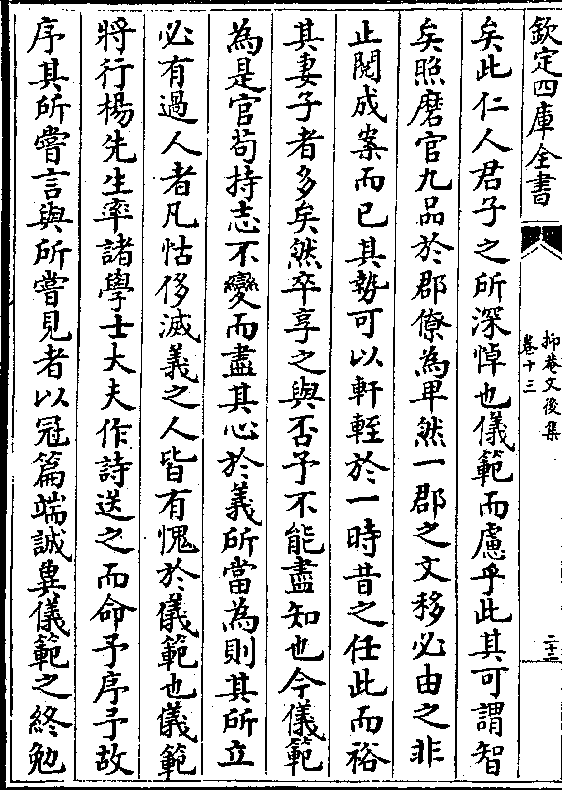 欽定四庫全書
抑菴文後集
卷十三
二十二
矣此仁人君子之所深悼也儀範而慮乎此其可謂智
矣照磨官九品於郡僚為卑然一郡之文移必由之非
止閱成案而已其勢可以軒輊於一時昔之任此而裕
其妻子者多矣然卒享之與否予不能盡知也今儀範
為是官苟持志不變而盡其心於義所當為則其所立
必有過人者凡怙侈滅義之人皆有愧於儀範也儀範
將行楊先生率諸學士大夫作詩送之而命予序予故
序其所嘗言與所嘗見者以冠篇端誠冀儀範之終勉